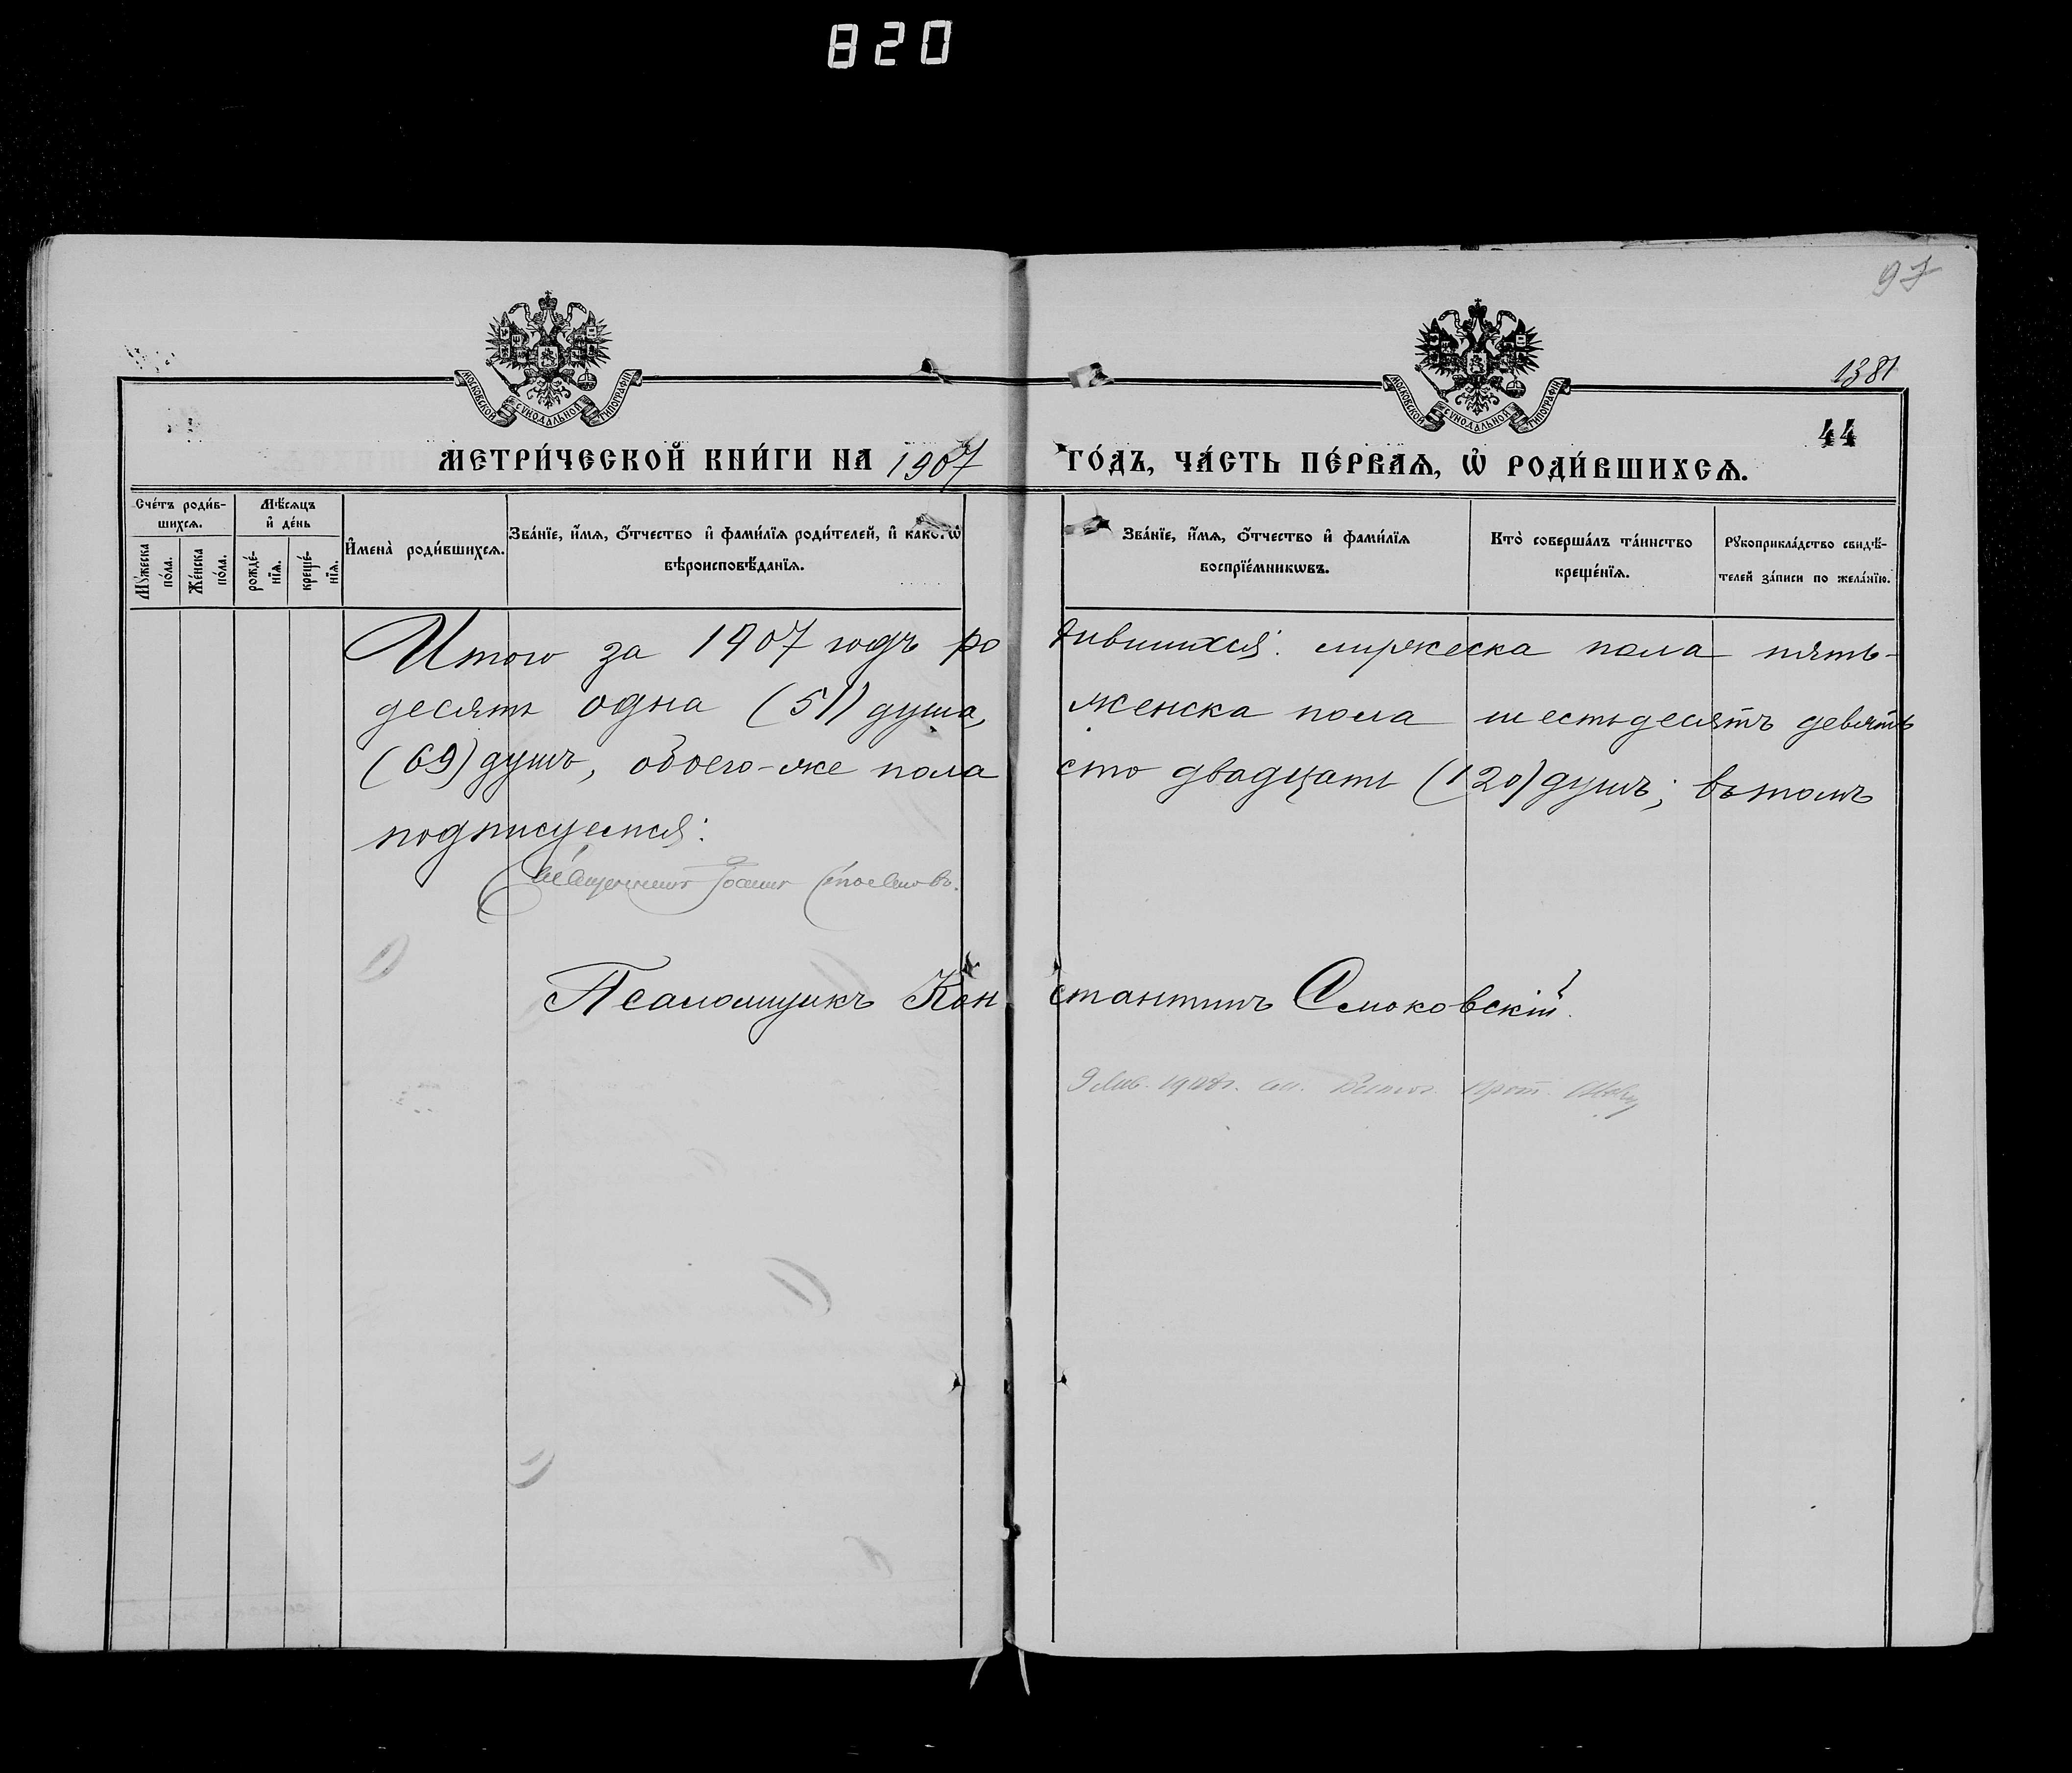 820
97
1381
44
МОСКОВСКОЙ СѴНОДАЛЬНОЙ ТИПОГРАФІИ
МОСКОВСКОЙ СѴНОДАЛЬНОЙ ТИПОГРАФІИ
МЕТРИ́ЧЕСКОЙ КНИ́ГИ НА 1907 ГО́ДЪ, ЧА́СТЬ ПЕ́РВАѦ, Ѡ҆ РОДИ́ВШИХСѦ.
Сче́тъ роди́в-
шихсѧ.
Мꙋ́жеска
по́ла.
Же́нска
по́ла.
Мѣ́сѧцъ
и҆ де́нь
рожде́-
нїѧ.
креще́-
нїѧ.
И҆мена̀ роди́вшихсѧ.
Зва́нїе, и҆́мѧ, ѻ҆́тчество и҆ фами́лїѧ роди́телей, и҆ како́гѡ
вѣроисповѣ́данїѧ.
Зва́нїе, и҆́мѧ, ѻ҆́тчество и҆ фами́лїѧ
воспрїе́мникѡвъ.
Кто̀ соверша́лъ та́инство
креще́нїѧ.
Рꙋкоприкла́дство свидѣ́-
телей за́писи по жела́нїю.
Итого за 1907 годъ ро дившихся: мужеска пола пять-
десятъ одна (51) душа, женска пола шестьдесятъ девять
(69) душъ, обоего-же пола сто двадцать (120) душъ; въ томъ
подписуемся:
Священникъ Іоаннъ
Псаломщикъ Кон стантинъ Смоковскій.
9 1908г. Прот.